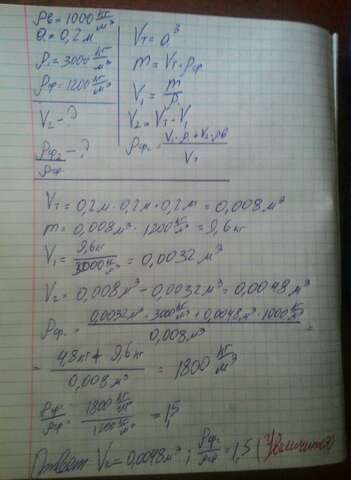 ρв=1000 кг/м³
a=0,2 м
ρ1=3000 кг/м³
ρф=1200 кг/м³
V2-?
ρф2/ρф -?
Vт=a³
m=Vт·ρф
V1=m/ρ1
V2=Vт-V1
ρф2=(V1·ρ1+V2·ρв)/Vт
Vт=0,2м·0,2м·0,2м=0,008м³
m=0,008м³·1200 кг/м³=9,6кг
V1=9,6кг/3000 кг/м³=0,0032м³
V2=0,008м³-0,0032м³=0,0048м³
ρф2=(0,0032м³·3000 кг/м³+0,0048м³·1000 кг/м³)/0,008м³=
=(4,8кг+9,6кг)/0,008м³=1800 кг/м³
ρф2/ρф=1800 кг/м³/1200 кг/м³=1,5
Ответ: V2=0,0048м³; ρф2/ρф=1,5 (Увеличится)